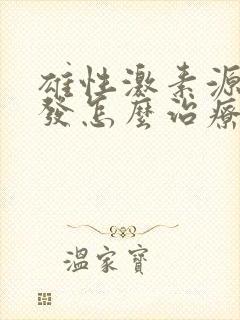 雄性激素源
發怎麼治療
溫家寶